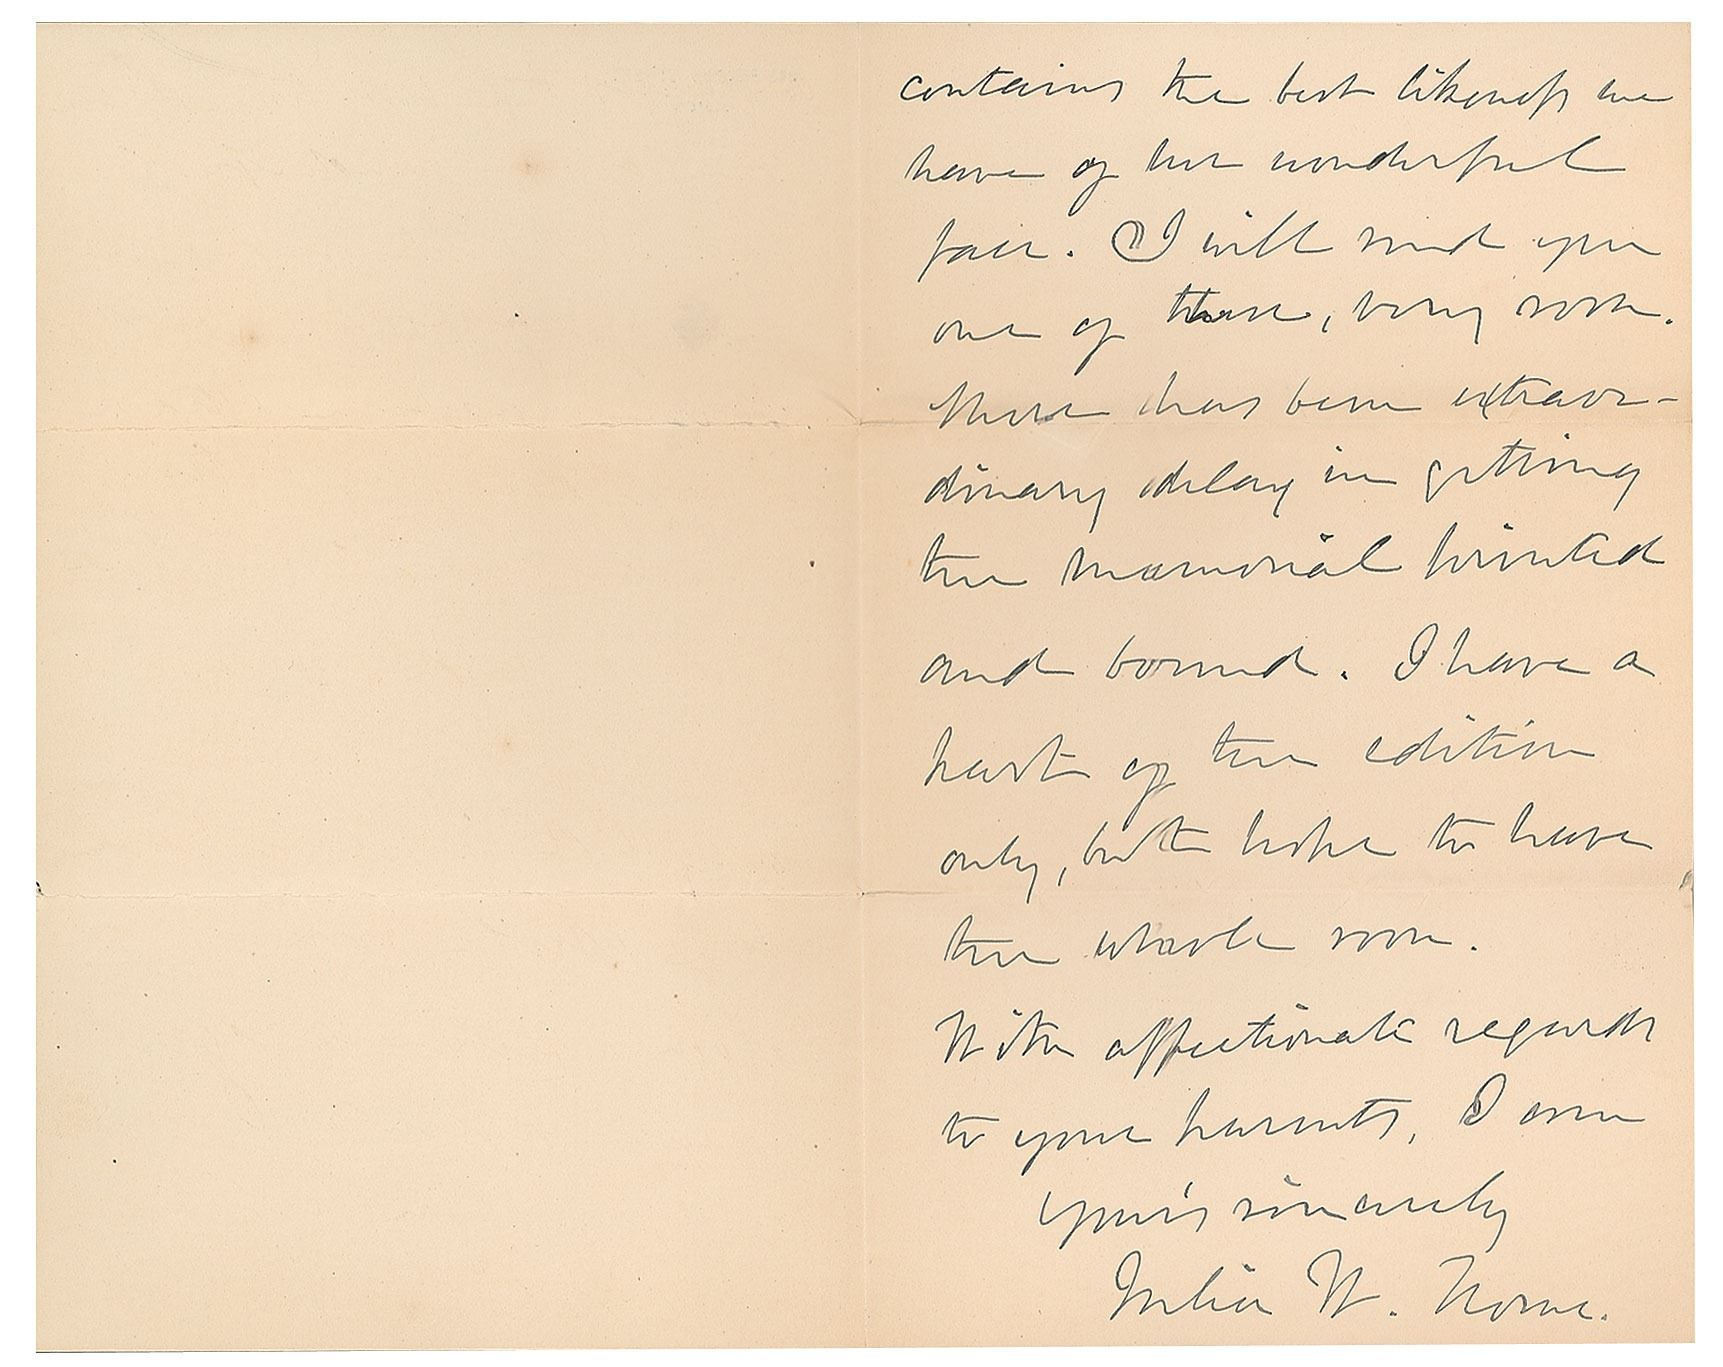 contains the best likeness we
have of his wonderful
face. I will send you
one of these, very soon.
There has been extraor-
dinary delay in getting
the memorial printed
and bound. I have a
part of the edition
only, but hope to have
the whole soon.
With affectionate regards
to your parents, I am
yours sincerely
Julia W. Howe.